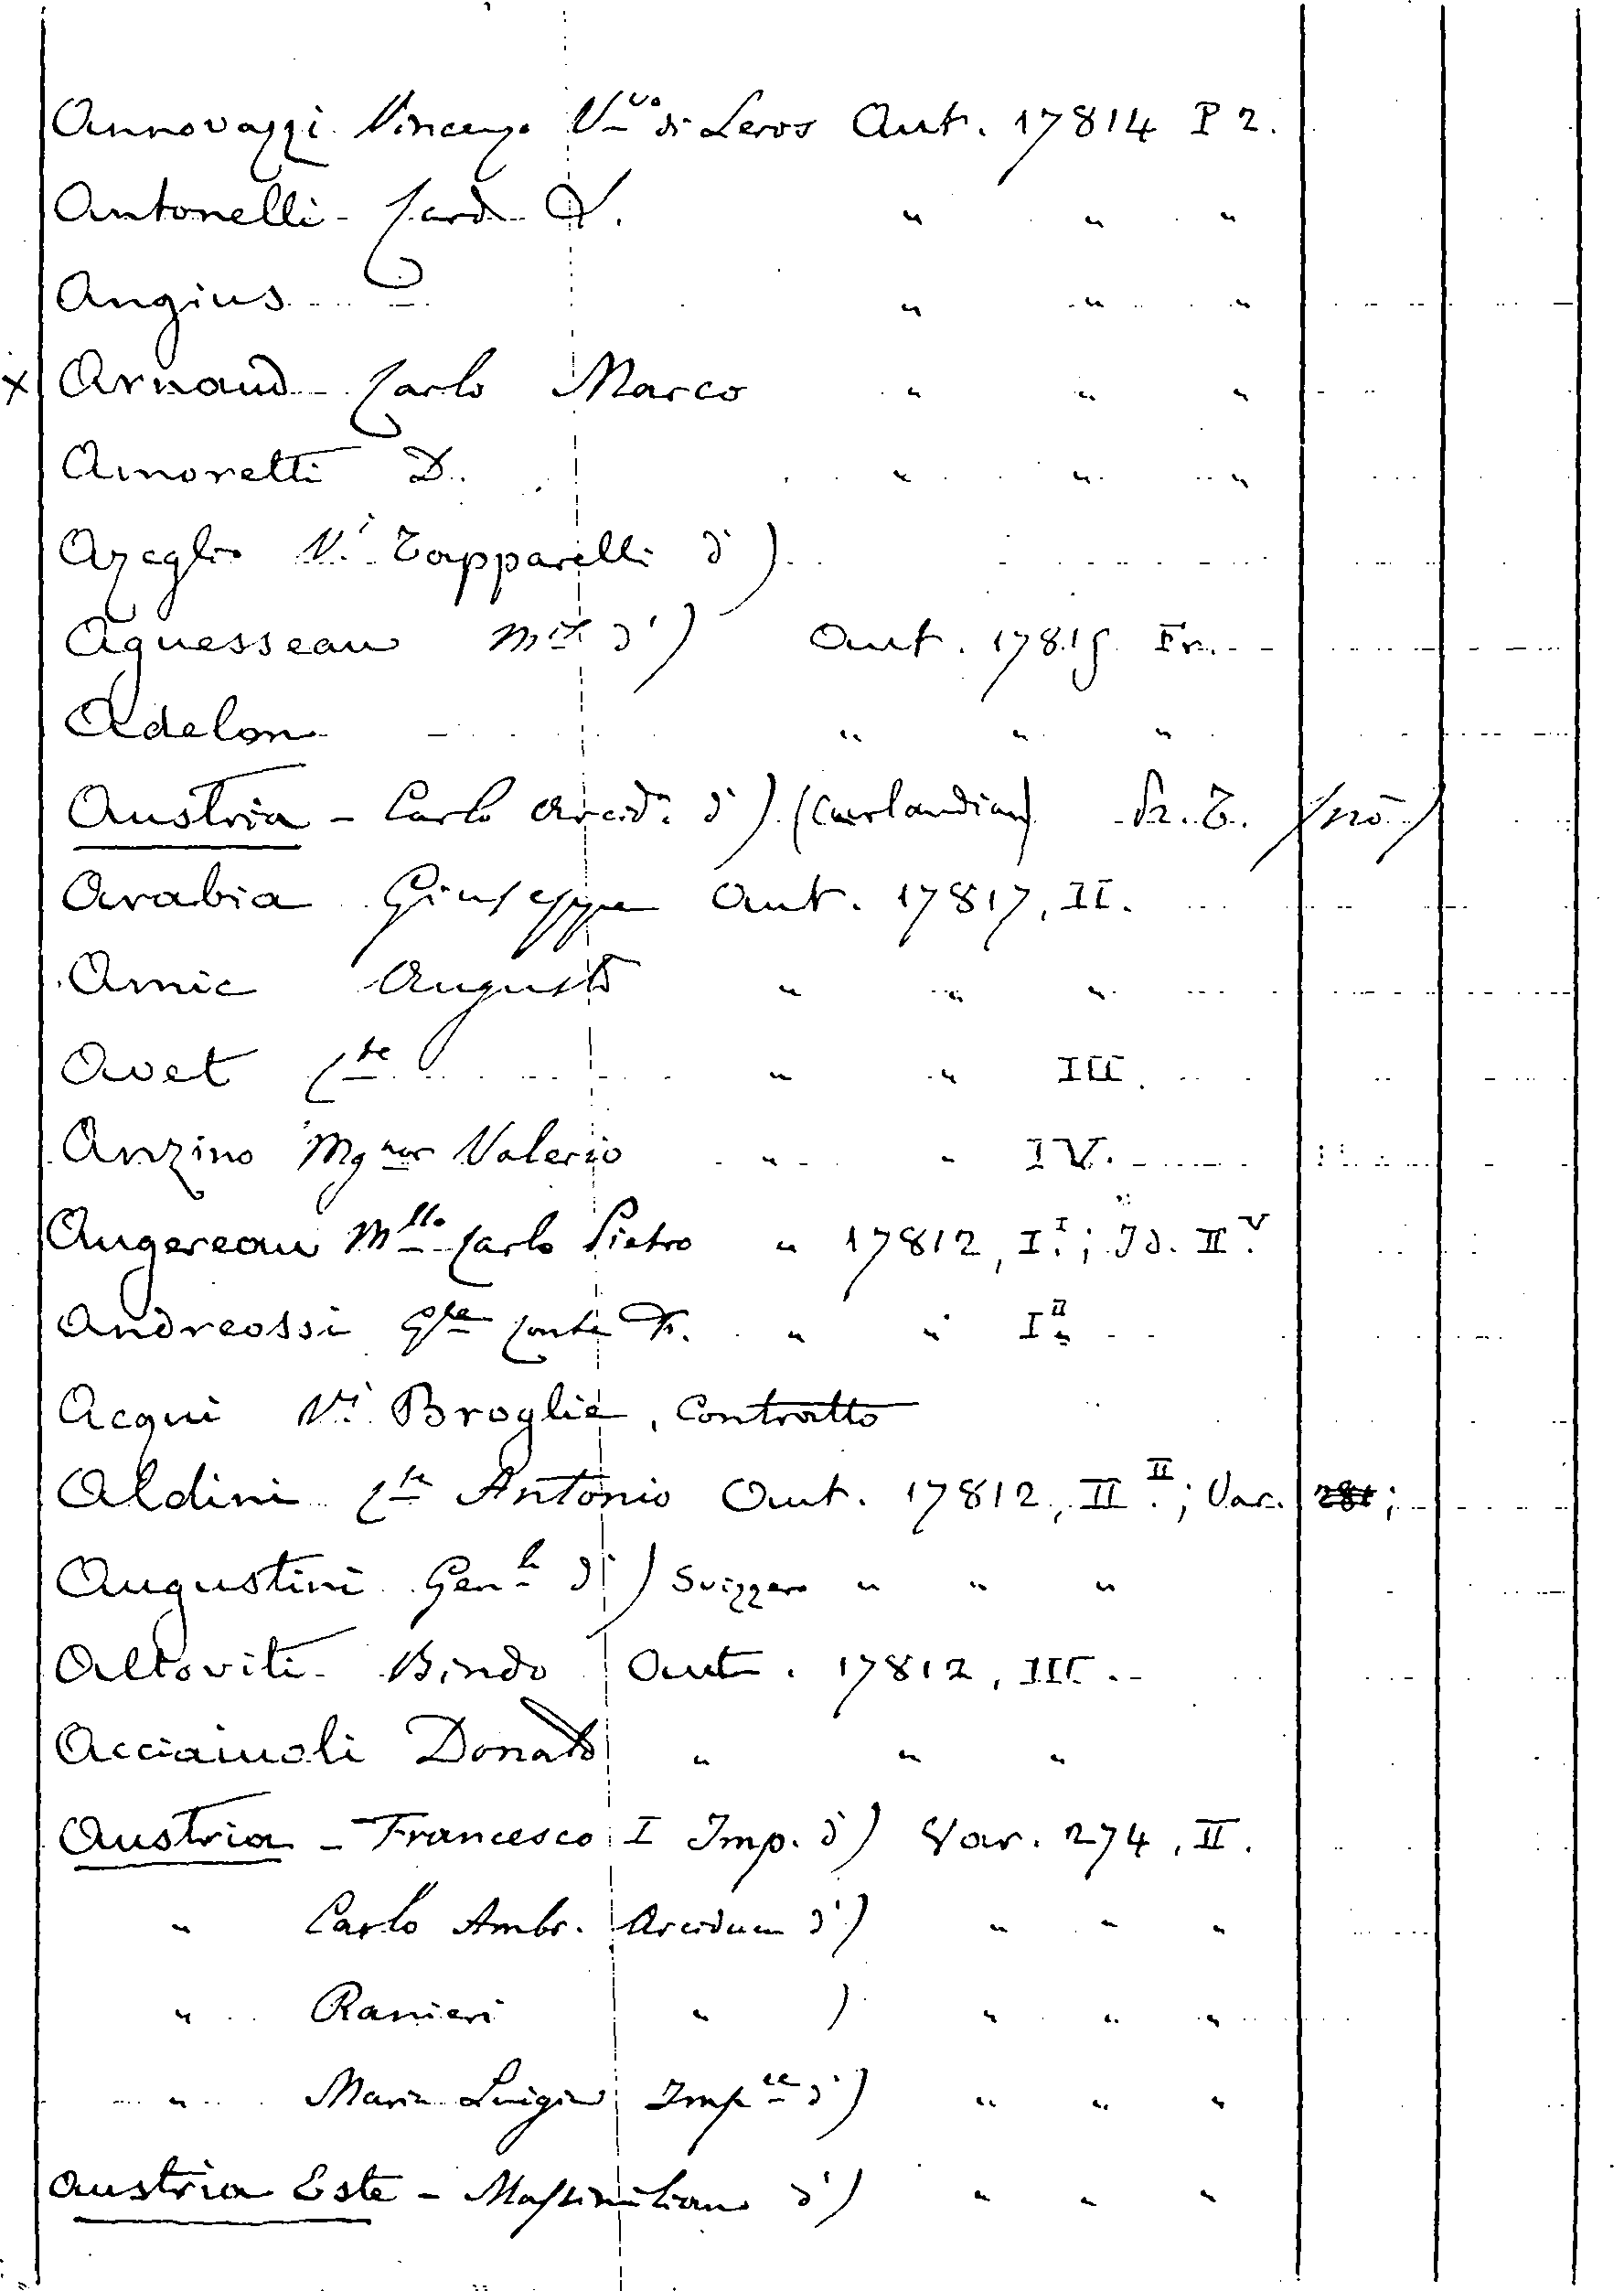 Annovazzi Vincenzo V^vo di Leros Aut. 17814 P 2.
Antonelli - Card
" " "
Angius " " "
x Arnaud - Carlo Marco " " "
Amoretti D. " " "
Azeglio V.i Tapparelli d')
Aguesseau M d') Aut. 17815 Fr.
Adelon " " "
Austria - Carlo Arcid.a d') (Curlandia) (no)
Arabia Giuseppe Aut. 17817, II.
Amic Augusto " " "
Avet C^te " " III.
Anzino Mg^nor Valerio " " IV.
Augereau M^llo Carlo Pietro " 17812, I.^I; Id. II.^V
Andreossi G^le Conte F. " " I^II "
Acqui V.i Broglia, Contratto
Aldini C^te Antonio Aut. 17812, II.^II; Var. 281;
Augustini Gen^le d') Svizzero " " "
Altoviti - Bindo Aut. 17812, III.
Acciaiuoli Donato " " "
Austria - Francesco I Imp. d') Var. 274, II.
" Carlo Ambr. Arciduca d') " " "
" Ranieri " ) " " "
" Maria Luigia Imp^ce d') " " "
Austria Este - Massimiliano d') " " "